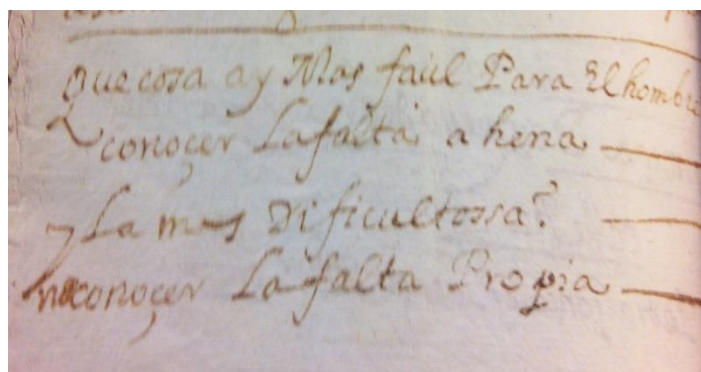 que cosa ay Mas façil Para El hombre
conoçer La falta ahena
y La mas dificultossa?
conoçer La falta Propia